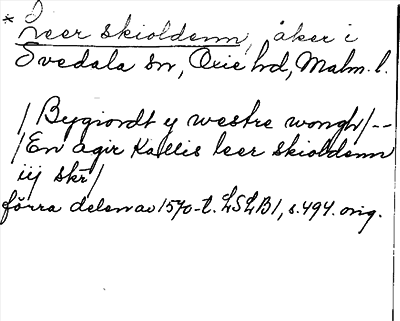 * Leer skioldenn, åker i
Svedala sn, Oxie hd, Malm. l.
/Bygiordt y westre wongh/--
/En agir Kallis leer skioldenn
iij skr/
förra delen av 1570-t. LSLB1, s.494. orig.